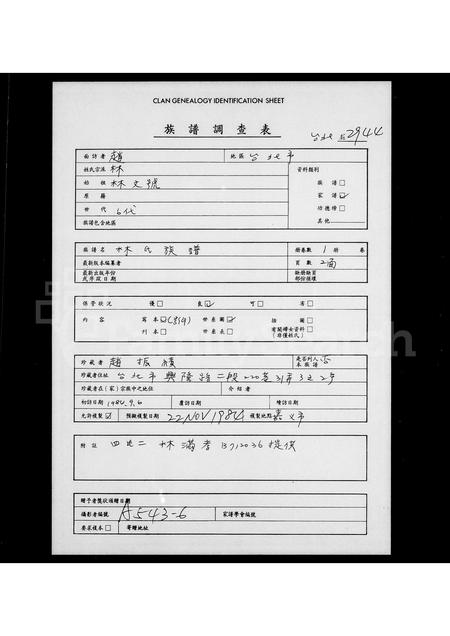 CLAN GENEALOGY IDENTIFICATION SHEET
族譜調查表
台北 2944
面訪者 趙 地區 台北市
姓氏宗派 林 資料類別
始祖 林文號 族譜□
原籍 家譜☑
世代 6代 功德榜□
族譜包含地區 其他
族譜名 林氏族譜 冊卷數 1 冊 卷
最新版本編纂者 頁數 2面
最新出版年份
或年序日期
保管狀況 優□ 良☑ 可□ 劣□
內容 寫本☑ 世系圖☑ 插圖□
刊本□ 世系表□ 有關婦女資料□
(非僅姓氏)
珍藏者 趙振績 是否列入本族譜 否
珍藏者住址 台北市興隆路二段220巷31弄3之2号
珍藏者在(家)宗族中之地位 介紹者
初訪日期 1984.9.6 覆訪日期 續訪日期
允許複製☑ 預擬複製日期 22 NOV 1984 複製地點 嘉义市
附註 林滿孝 B712036 提供
贈予者獎狀頒贈日期
攝影者編號 A543-6 家譜學會編號
要求複本□ 寄贈地址
FamilySearch